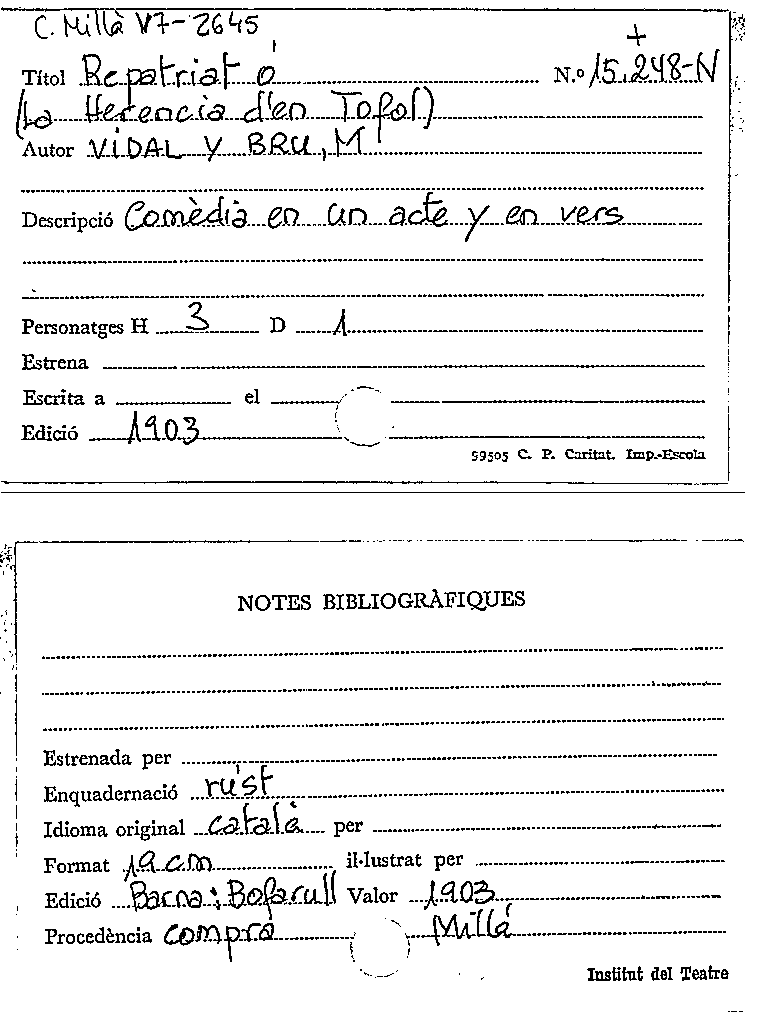 C. Millà V7-2645
+
Títol Repatriat ó N.º 15.248-N
(La Herencia d'en Tofol)
Autor VIDAL Y BRU, M
Descripció Comèdia en un acte y en vers
Personatges H 3 D 1
Estrena
Escrita a el
Edició 1903
99505 C. P. Caritat. Imp.-Escola
NOTES BIBLIOGRÀFIQUES
Estrenada per
Enquadernació rúst
Idioma original català per
Format 19 cm il·lustrat per
Edició Barna: Bofarull Valor 1903
Procedència compra Millá
Institut del Teatre